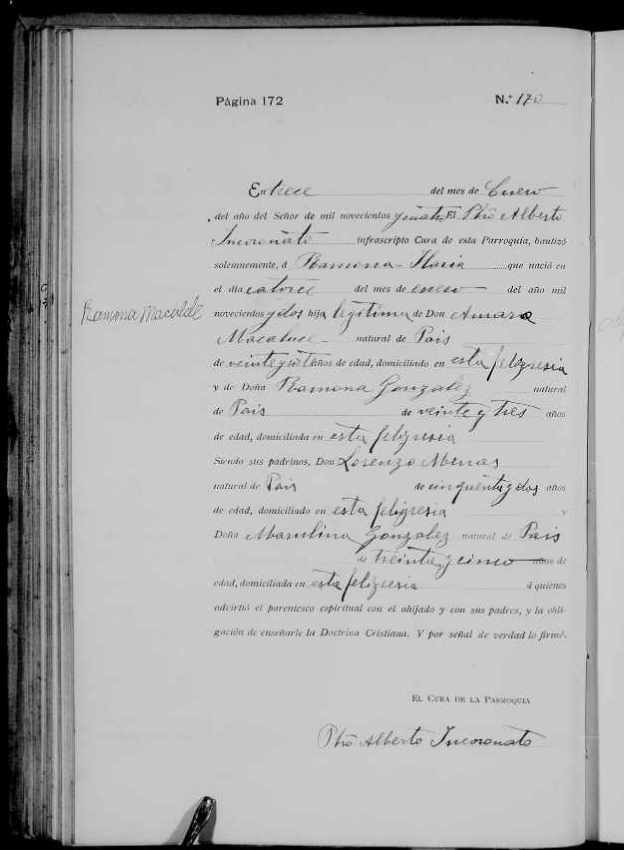 Página 172
N.º 170
En trece del mes de Enero
del año del Señor de mil novecientos y cuatro El Pbro Alberto
Incoronato infrascripto Cura de esta Parroquia, bautizó
solemnemente, á Ramona que nació en
el día catorce del mes de enero del año mil
Ramona
novecientos y dos hija legitima de Don Amaro
natural de Pais
de años de edad, domiciliado en esta feligresia
y de Doña Ramona Gonzalez natural
de Pais de veinte y tres años
de edad, domiciliada en esta feligresia
Siendo sus padrinos, Don Lorenzo
natural de Pais de cinquenta y dos años
de edad, domiciliado en esta feligresia y
Doña Gonzalez natural de Pais
de treinta y cinco años de
edad, domiciliada en esta feligresia á quienes
advirtió el parentesco espiritual con el ahijado y con sus padres, y la obli-
gación de enseñarle la Doctrina Cristiana. Y por señal de verdad lo firmó.
EL CURA DE LA PARROQUIA
Pbro Alberto Incoronato